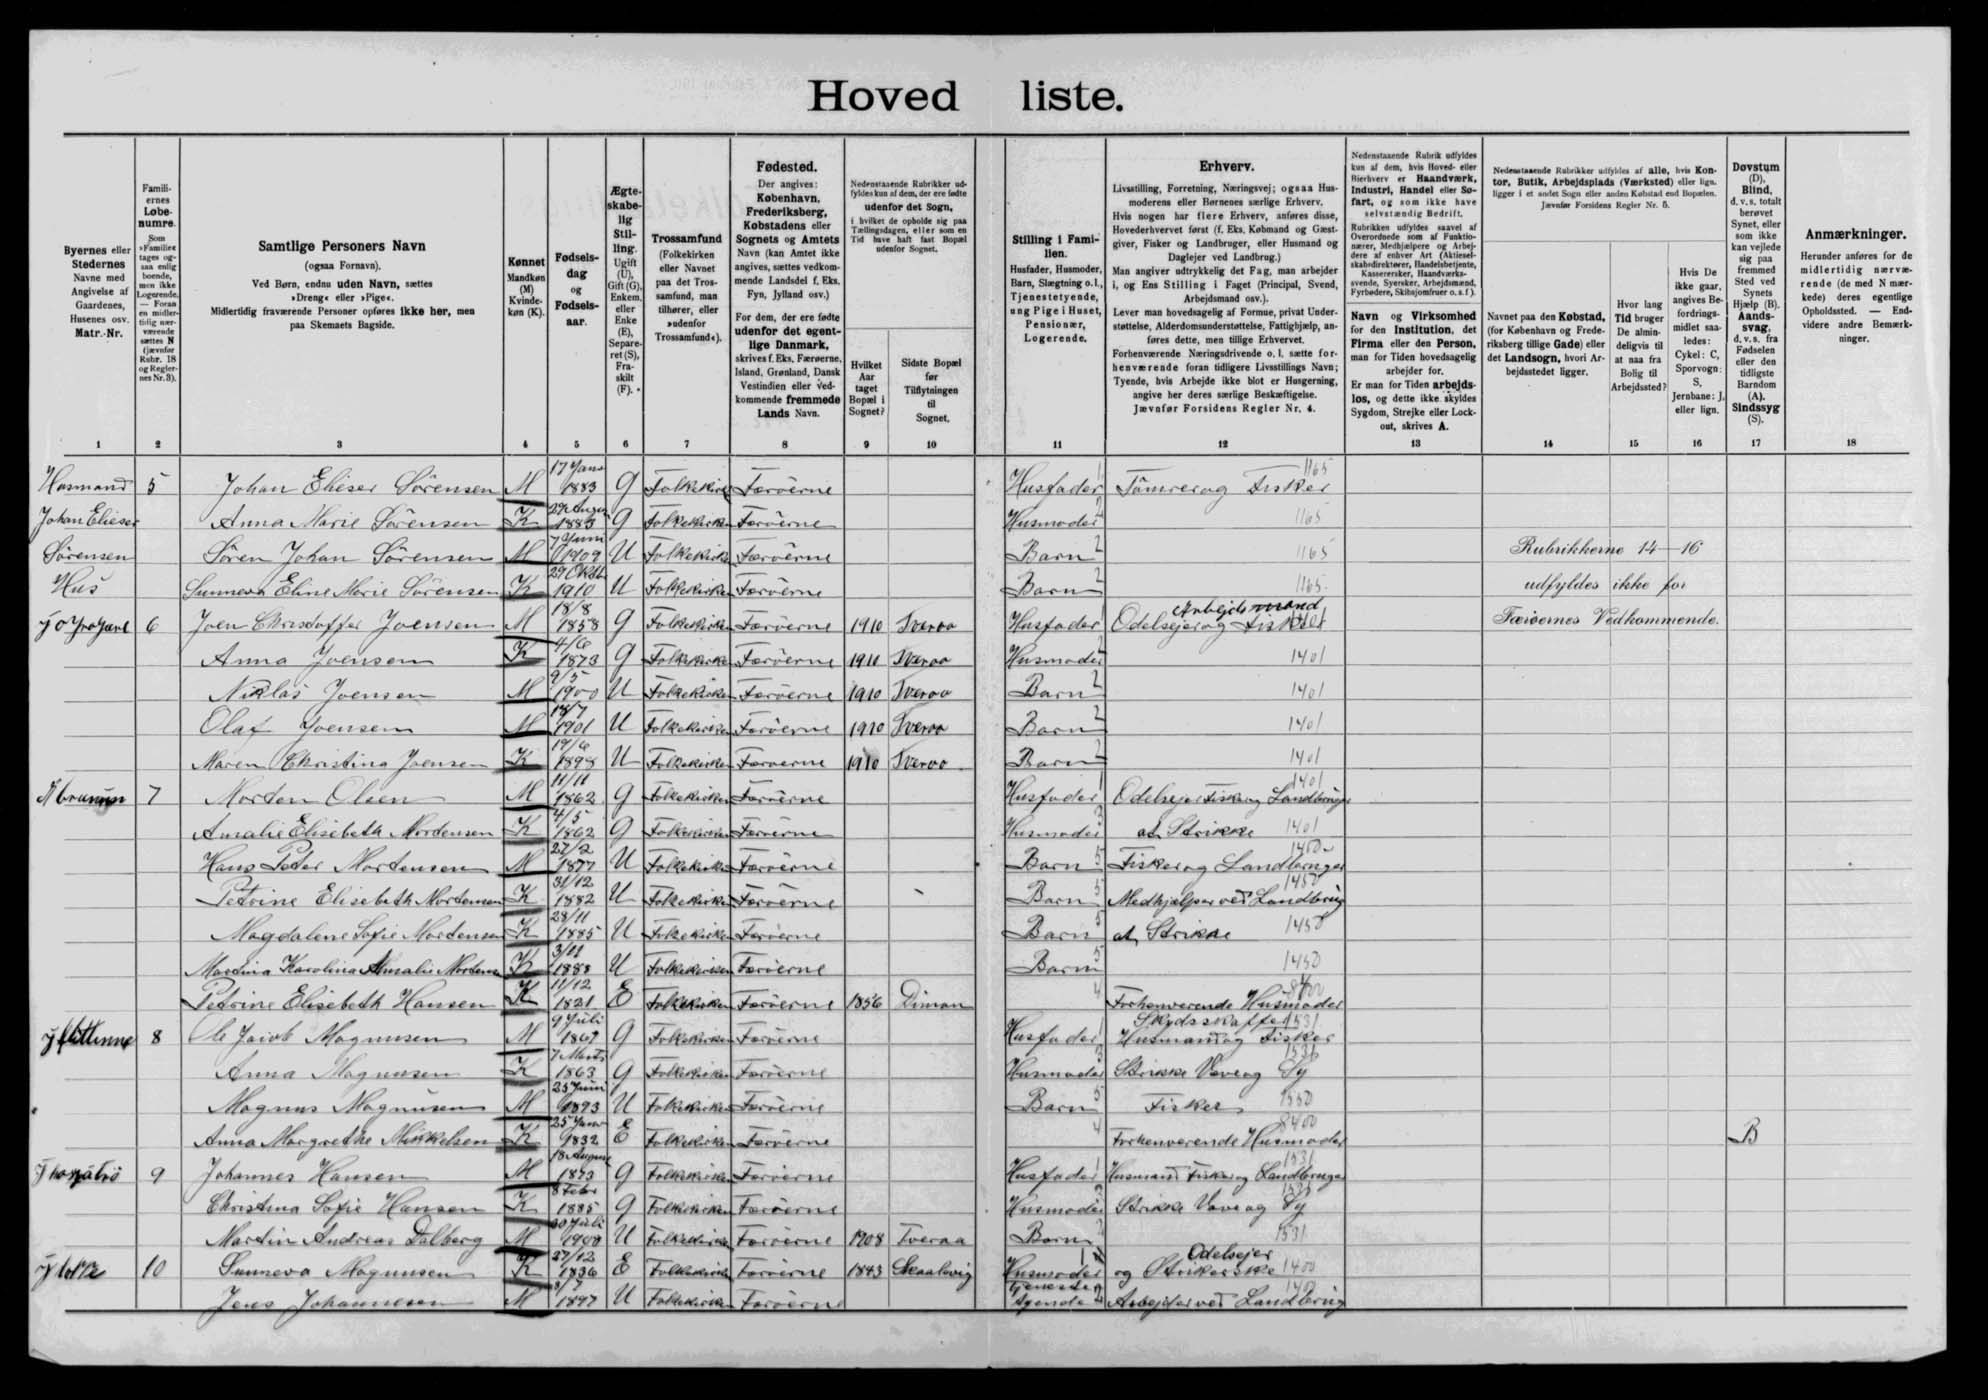 Hoved liste.
Byernes eller Stedernes Navne med Angivelse af Gaardenes, Husenes osv. Matr.-Nr.
Familiernes Løbenumre.
Som »Familie« tages ogsaa enlig boende, men ikke Logerende. — Foran en midlertidig nærværende sættes N (jævnfør Rubr. 18 og Regler nes Nr. 3).
Samtlige Personers Navn
(ogsaa Fornavn).
Ved Børn, endnu uden Navn, sættes »Dreng« eller »Pige«.
Midlertidig fraværende Personer opføres ikke her, men paa Skemaets Bagside.
Kønnet
Mandkøn (M) Kvindekøn (K).
Fødselsdag og Fødselsaar.
Ægteskabelig Stilling.
Ugift (U), Gift (G), Enkem. eller Enke (E), Separeret (S), Fraskilt (F).
Trossamfund
(Folkekirken eller Navnet paa det Trossamfund, man tilhører, eller »udenfor Trossamfund«).
Fødested.
Der angives: København, Frederiksberg, Købstadens eller Sognets og Amtets Navn (kan Amtet ikke angives, sættes vedkommende Landsdel f. Eks. Fyn, Jylland osv.)
For dem, der ere fødte udenfor det egentlige Danmark, skrives f. Eks. Færøerne, Island, Grønland, Dansk Vestindien eller vedkommende fremmede Lands Navn.
Nedenstaaende Rubrikker udfyldes kun af dem, der ere fødte udenfor det Sogn, i hvilket de opholde sig paa Tællingsdagen, eller som en Tid have haft fast Bopæl udenfor Sognet.
Hvilket Aar taget Bopæl i Sognet?
Sidste Bopæl før Tilflytningen til Sognet.
Stilling i Familien.
Husfader, Husmoder, Barn, Slægtning o. l., Tjenestetyende, ung Pige i Huset, Pensionær, Logerende.
Erhverv.
Livsstilling, Forretning, Næringsvej; ogsaa Husmoderens eller Børnenes særlige Erhverv.
Hvis nogen har flere Erhverv, anføres disse, Hovederhvervet først (f. Eks. Købmand og Gæstgiver, Fisker og Landbruger, eller Husmand og Daglejer ved Landbrug.)
Man angiver udtrykkelig det Fag, man arbejder i, og Ens Stilling i Faget (Principal, Svend, Arbejdsmand osv.).
Lever man hovedsagelig af Formue, privat Understøttelse, Alderdomsunderstøttelse, Fattighjælp, anføres dette, men tillige Erhvervet.
Forhenværende Næringsdrivende o. l. sætte forhenværende foran tidligere Livsstillings Navn;
Tyende, hvis Arbejde ikke blot er Husgerning, angive her deres særlige Beskæftigelse.
Jævnfør Forsidens Regler Nr. 4.
Nedenstaaende Rubrik udfyldes kun af dem, hvis Hoved- eller Bierhverv er Haandværk, Industri, Handel eller Søfart, og som ikke have selvstændig Bedrift.
Rubrikken udfyldes saavel af Overordnede som af Funktionærer, Medhjælpere og Arbejdere af enhver Art (Aktieselskabsdirektører, Handelsbetjente, Kasserersker, Haandværkssvende, Syersker, Arbejdsmænd, Fyrbødere, Skibsjomfruer o. s. f.).
Navn og Virksomhed for den Institution, det Firma eller den Person, man for Tiden hovedsagelig arbejder for.
Er man for Tiden arbejdsløs, og dette ikke skyldes Sygdom, Strejke eller Lockout, skrives A.
Nedenstaaende Rubrikker udfyldes af alle, hvis Kontor, Butik, Arbejdsplads (Værksted) eller lign. ligger i et andet Sogn eller anden Købstad end Bopælen.
Jævnfør Forsidens Regler Nr. 5.
Navnet paa den Købstad, (for København og Frederiksberg tillige Gade) eller det Landsogn, hvori Arbejdsstedet ligger.
Hvor lang Tid bruger De almindeligvis til at naa fra Bolig til Arbejdssted?
Hvis De ikke gaar, angives Befordringsmidlet saaledes: Cykel: C, Sporvogn: S, Jernbane: J, eller lign.
Døvstum (D), Blind, d. v. s. totalt berøvet Synet, eller som ikke kan vejlede sig paa fremmed Sted ved Synets Hjælp (B). Aandssvag, d. v. s. fra Fødselen eller den tidligste Barndom (A). Sindssyg (S).
Anmærkninger.
Herunder anføres for de midlertidig nærværende (de med N mærkede) deres egentlige Opholdssted. — Endvidere andre Bemærkninger.
1 2 3 4 5 6 7 8 9 10 11 12 13 14 15 16 17 18
Husmand 5 Johan Elieser Sörensen M 17 Janr 1883 G Folkekirken Færöerne Husfader 1 Tömrer og Fisker 1165
Johan Elieser Anna Marie Sörensen K 1883 G Folkekirken Færöerne Husmoder 2 1165
Sörensen Sören Johan Sörensen M 7 Juni 1909 U Folkekirken Færöerne Barn 2 1165 Rubrikkerne 14—16
Hus Sunneva Eline Marie Sörensen K 29 Oktbr 1910 U Folkekirken Færöerne Barn 2 1165 udfyldes ikke for
6 Joen Christoffer Joensen M 18/8 1858 G Folkekirken Færöerne 1910 Tveraa Husfader 1 Odelsejer og Fisker Arbejdsmand Færöernes Vedkommende.
Anna Joensen K 4/6 1873 G Folkekirken Færöerne 1910 Tveraa Husmoder 2 1401
Niklas Joensen M 9/5 1900 U Folkekirken Færöerne 1910 Tveraa Barn 2 1401
Olaf Joensen M 1901 U Folkekirken Færöerne 1910 Tveraa Barn 2 1401
Maren Christina Joensen K 19/6 1898 U Folkekirken Færöerne 1910 Tveraa Barn 2 1401
7 Morten Olsen M 11/11 1862 G Folkekirken Færöerne Husfader 1 Odelsejer Fisker og Landbruger 1401
Amalie Elisebeth Mortensen K 4/5 1862 G Folkekirken Færöerne Husmoder 3 at Strikke 1401
Hans Peter Mortensen M 27/2 1877 U Folkekirken Færöerne Barn 5 Fisker og Landbruger 1450
Petrine Elisebeth Mortensen K 31/12 1882 U Folkekirken Færöerne Barn 5 Medhjælper ved Landbrug 1450
Magdalene Sofie Mortensen K 28/11 1885 U Folkekirken Færöerne Barn 5 at Strikke 1450
Martina Karolina Amalie Mortensen K 3/11 1888 U Folkekirken Færöerne Barn 5 1450
Petrine Elisebeth Hansen K 11/12 1821 E Folkekirken Færöerne 1856 Dimon 4 Forhenværende Husmoder 8400
8 Ole Jacob Magnusen M 9 Juli 1867 G Folkekirken Færöerne Husfader 1 Skydsskaffer Husmand og Fisker 1531
Anna Magnusen K 7 Marts 1863 G Folkekirken Færöerne Husmoder 3 Strikke Væve og Sy 1531
Magnus Magnusen M 25 Juni 1893 U Folkekirken Færöerne Barn 5 Fisker 1550
Anna Margrethe Mikkelsen K 25 Janr 1832 E Folkekirken Færöerne 4 Forhenværende Husmoder 8400 B
9 Johannes Hansen M 18 August 1873 G Folkekirken Færöerne Husfader 1 Husmand Fisker og Landbruger 1531
Christina Sofie Hansen K 8 Febr 1885 G Folkekirken Færöerne Husmoder 3 Strikke Væve og Sy 1531
Martin Andreas Dalberg M 20 Juli 1900 U Folkekirken Færöerne 1908 Tveraa Barn 2 1531
10 Sunneva Magnusen K 27/12 1836 E Folkekirken Færöerne 1843 Skaalevig Husmoder Odelsejer og Strikerske 1400
Jens Johannesen M 3/7 1897 U Folkekirken Færöerne Tjeneste tyende 2 Arbejder ved Landbrug 1400